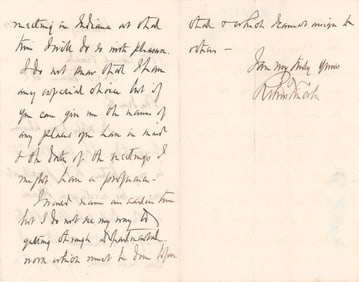 meeting in Indiana at that
time I will do so with pleasure.
I do not know that I have
any especial choice but if
you can give me the names of
any places you have in mind
& the dates of the meetings I
might have a preference.
I would name an earlier time
but I do not see my way to
getting through Departmental
work which must be done before
that & which I cannot assign to
others —
I am very truly yours